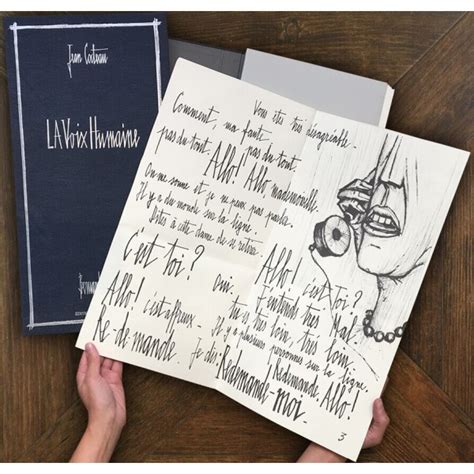 Jean Cocteau
LA Voix Humaine
Vous êtes très désagréable.
Comment, ma faute
pas du tout. pas du tout.
Allo! Allo mademoiselle.
On me sonne et je ne peux pas parler.
Il y a du monde sur la ligne.
Dites à cette dame de se retirer.
c'est toi?
Allo! c'est affreux.
Re-demande.
Allo! c'est Toi?
oui. J'entends très Mal.
tu es très loin, très loin.
Il y a plusieurs personnes sur la ligne.
Je dis: Redemande. Allo!
Redemande-moi.
3